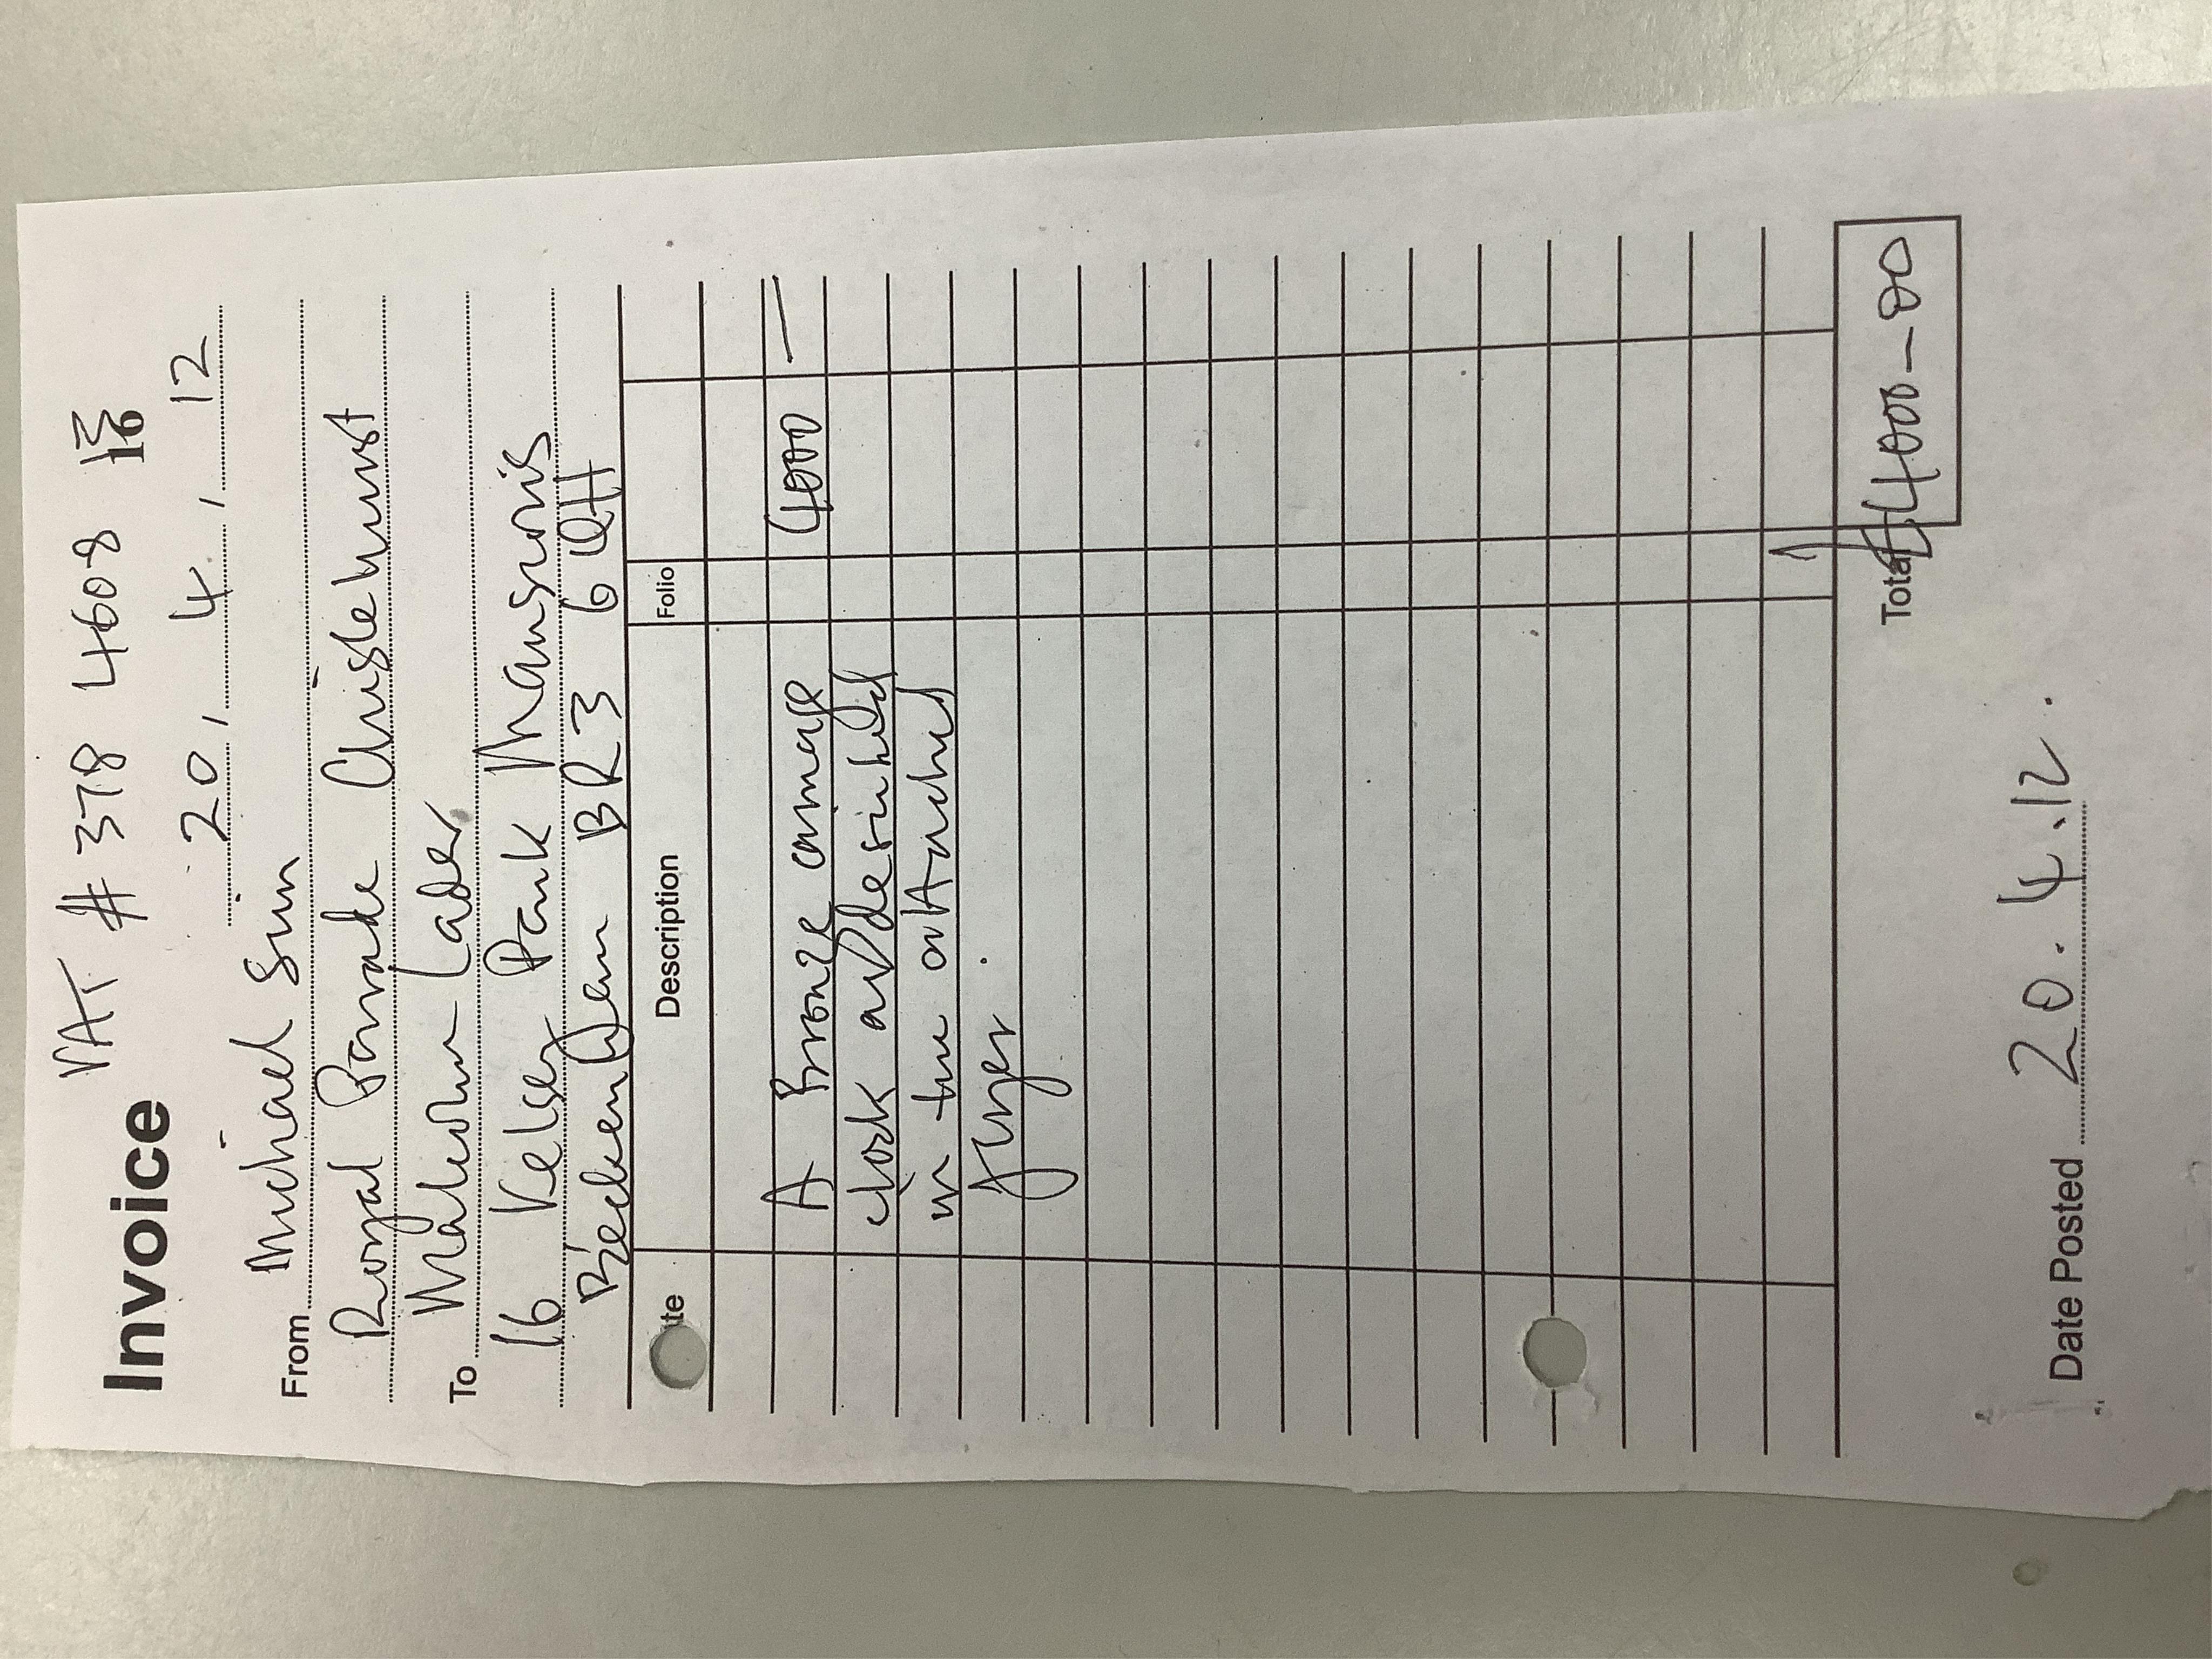 Invoice VAT # 378 4608 13
16
20, 4, 12
From Michael Sim
Royal Parade Chislehurst
To Malcolm Lader
16 Kelsey Park Mansions
Beckenham BR3 6QH
Date Description Folio
A Bronze carriage 4000 —
clock as described
in the attached
flyer.
Total £4000-00
Date Posted 20.4.12.